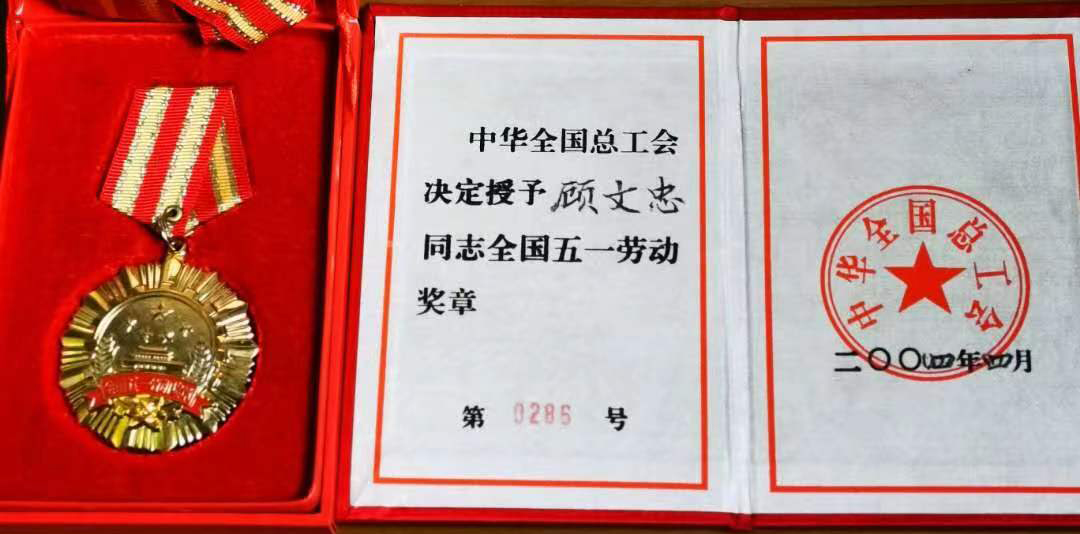 中华全国总工会
决定授予顾文忠
同志全国五一劳动
奖章
第 0286 号
中华全国总工会
二〇〇四年四月